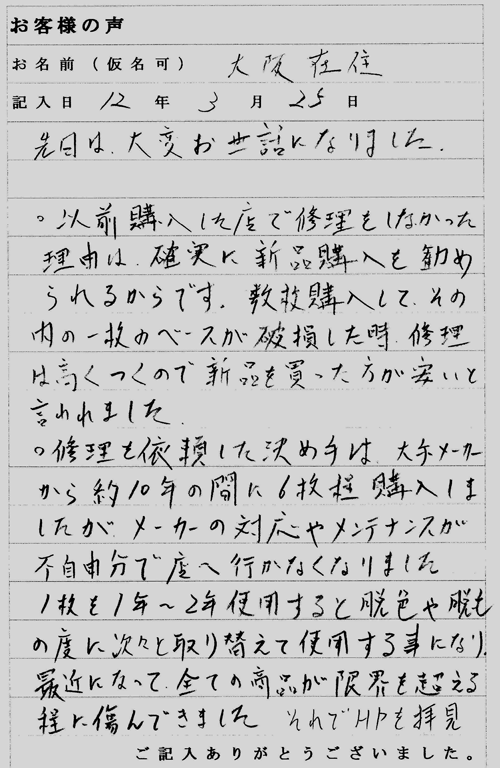 お客様の声
お名前（仮名可） 大阪在住
記入日 12 年 3 月 25 日
先日は、大変お世話になりました。
。以前購入した店で修理をしなかった
理由は、確実に新品購入を勧め
られるからです。数枚購入して、その
内の一枚のベースが破損した時、修理
は高くつくので新品を買った方が安いと
言われました。
。修理を依頼した決め手は、大手メーカー
から約10年の間に6枚程購入しま
したが、メーカーの対応やメンテナンスが
不自由分で店へ行かなくなりました
1枚を1年〜2年使用すると脱色や脱毛
の度に次々と取り替えて使用する事になり、
最近になって、全ての商品が限界を超える
程に傷んできました それでHPを拝見
ご記入ありがとうございました。